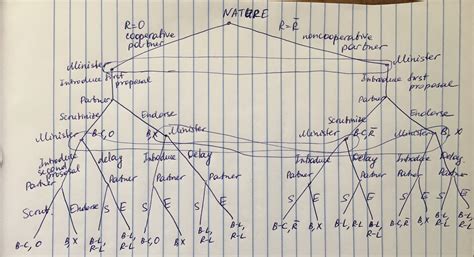 NATURE
R=0
cooperative
partner
R=R̄
noncooperative
partner
Minister
Introduce first
proposal
Minister
Introduce first
proposal
Partner
Partner
Scrutinize
Endorse
Scrutinize
Endorse
Minister
B-C, 0
B, X
Minister
Minister
B-C, R̄
Minister
B, X
Introduce
second
proposal
delay
Introduce
Delay
Introduce
Delay
Introduce
Delay
Partner
Partner
Partner
Partner
Partner
Partner
Partner
Partner
Scrut.
Endorse
S
E
S
E
S
E
S
E
S
E
S
E
S
E
B-C, 0
B, X
B-L,
R-L
B-L,
R-L
B-C, 0
B, X
B-L,
R-L
B-L,
R-L
B-C, R̄
B, X
B-L,
R-L
B-L,
R-L
B-C, R̄
B, X
B-L,
R-L
B-L,
R-L